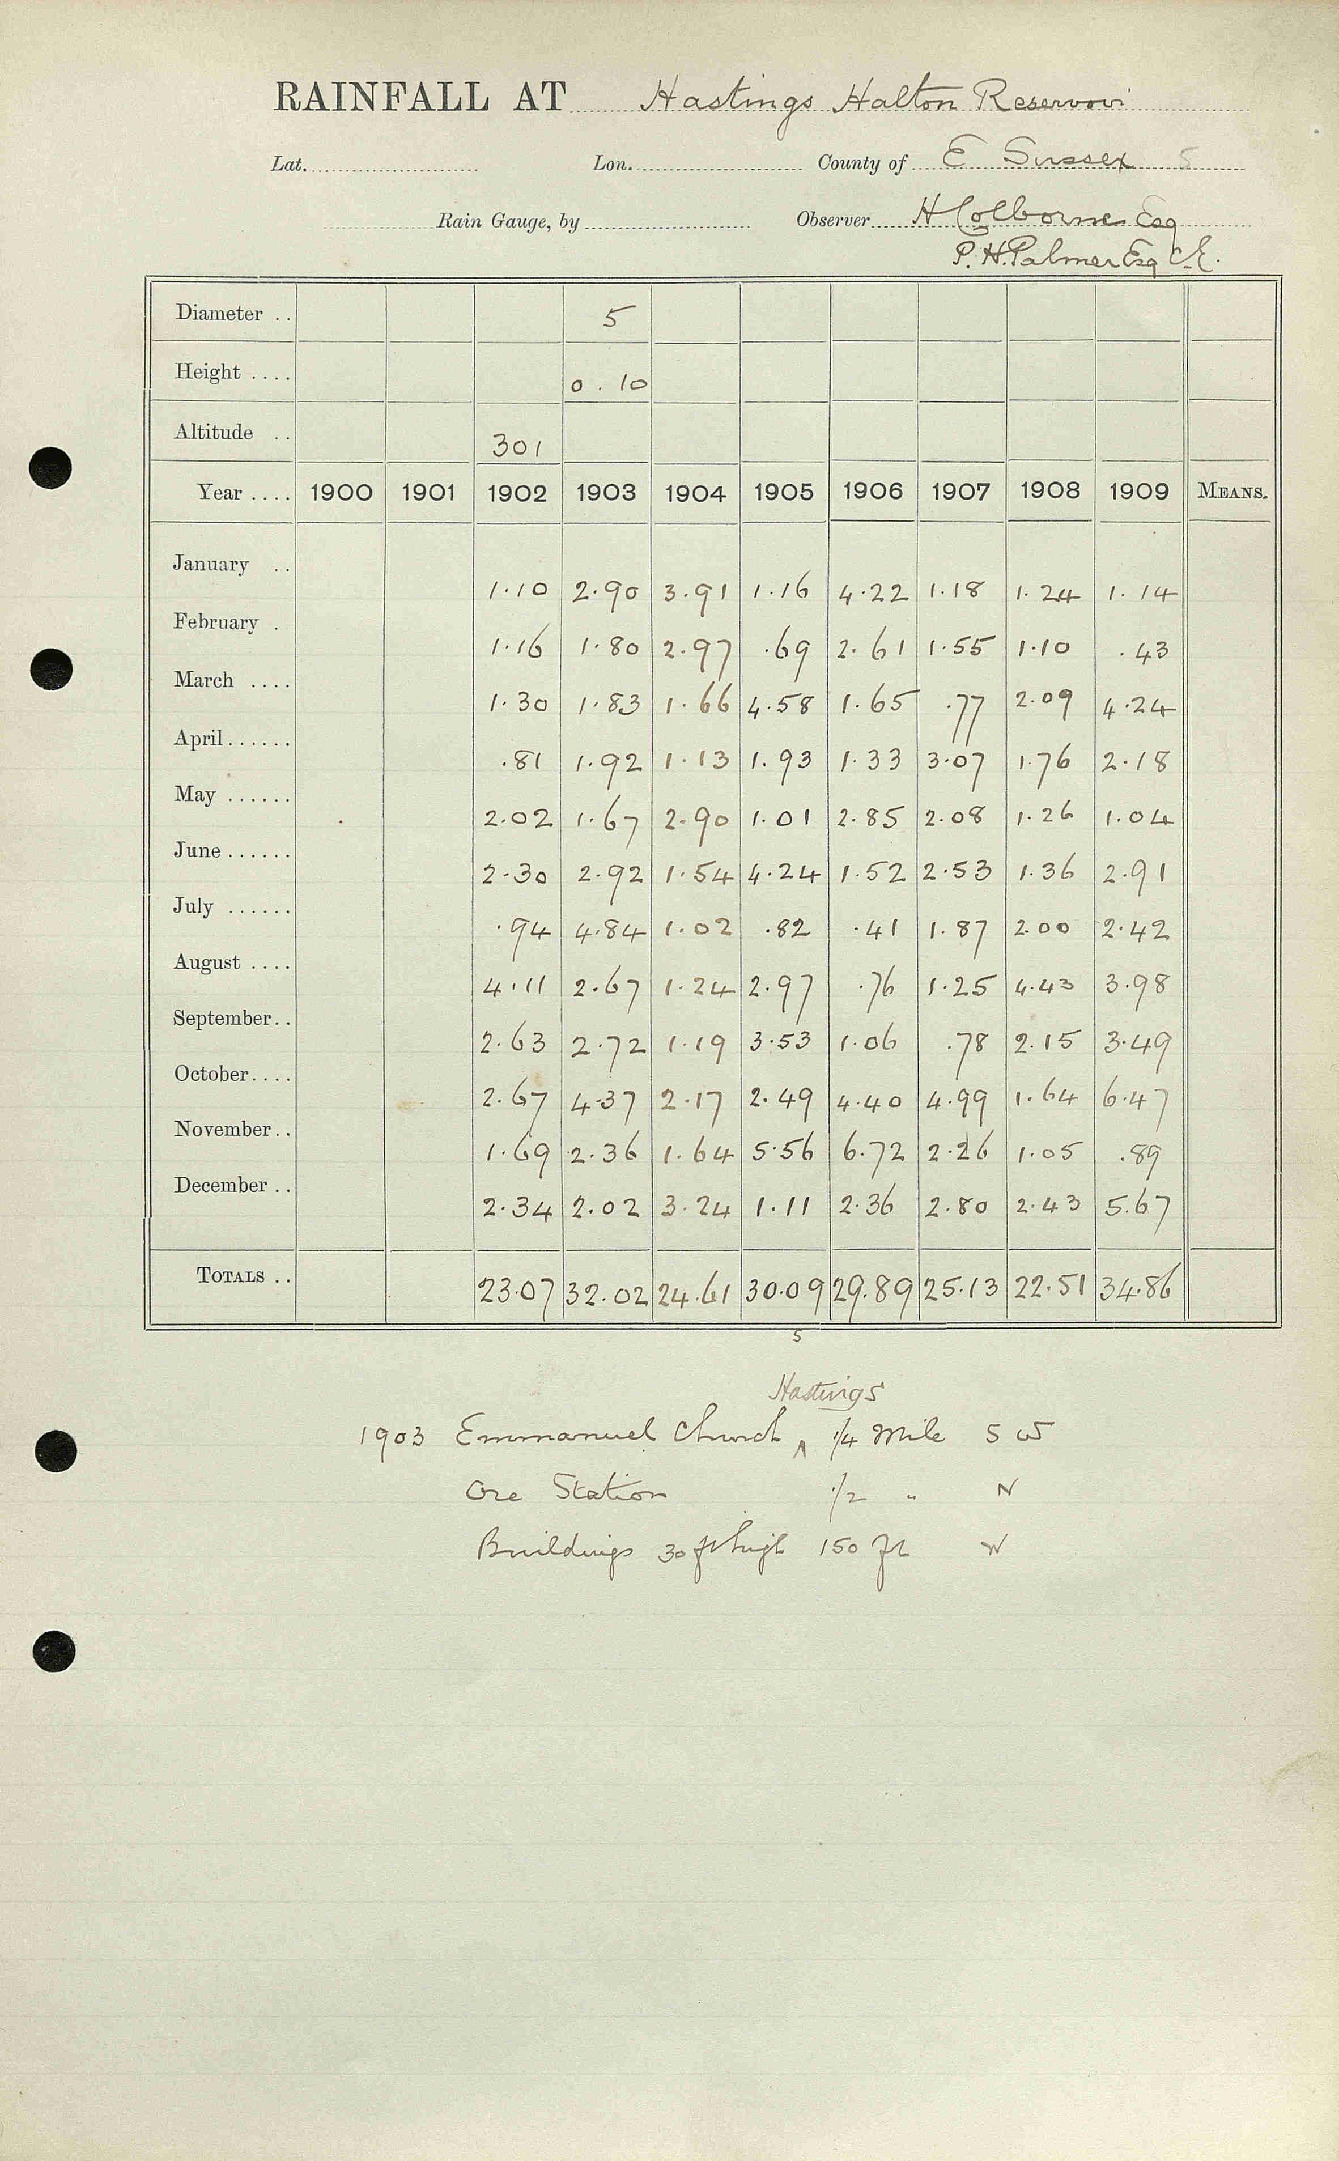 RAINFALL AT Hastings Halton Reservoir
Lat. Lon. County of E Sussex 5
Rain Gauge, by Observer H Colborne Esq
P. H. Palmer Esq C.E.
Diameter .. 5
Height .... 0 . 10
Altitude .. 301
Year .... 1900 1901 1902 1903 1904 1905 1906 1907 1908 1909 MEANS.
January .. 1.10 2.90 3.91 1.16 4.22 1.18 1.24 1.14
February . 1.16 1.80 2.97 .69 2.61 1.55 1.10 .43
March .... 1.30 1.83 1.66 4.58 1.65 .77 2.09 4.24
April...... .81 1.92 1.13 1.93 1.33 3.07 1.76 2.18
May ...... 2.02 1.67 2.90 1.01 2.85 2.08 1.26 1.04
June...... 2.30 2.92 1.54 4.24 1.52 2.53 1.36 2.91
July ...... .94 4.84 1.02 .82 .41 1.87 2.00 2.42
August .... 4.11 2.67 1.24 2.97 .76 1.25 4.43 3.98
September.. 2.63 2.72 1.19 3.53 1.06 .78 2.15 3.49
October.... 2.67 4.37 2.17 2.49 4.40 4.99 1.64 6.47
November.. 1.69 2.36 1.64 5.56 6.72 2.26 1.05 .89
December .. 2.34 2.02 3.24 1.11 2.36 2.80 2.43 5.67
TOTALS .. 23.07 32.02 24.61 30.09 29.89 25.13 22.51 34.86
5
Hastings
1903 Emmanuel Church ^ 1/4 Mile S W
Ore Station 1/2 " N
Buildings 30 ft high 150 ft W